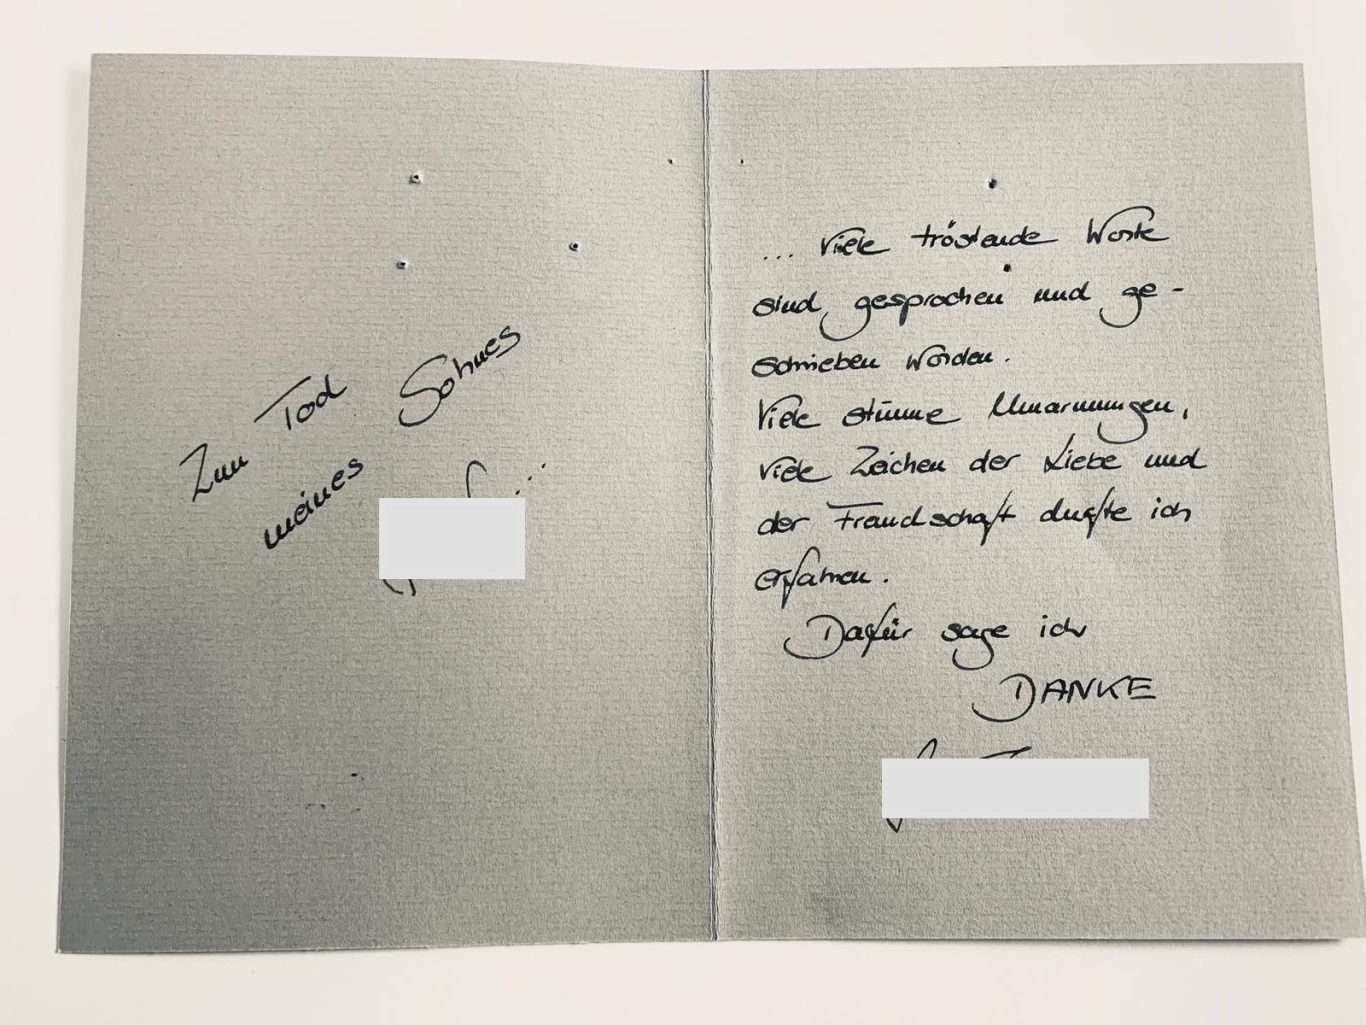 Zum Tod
meines Sohnes
...
... Viele tröstende Worte
sind gesprochen und ge-
schrieben worden.
Viele stumme Umarmungen,
viele Zeichen der Liebe und
der Freundschaft durfte ich
erfahren.
Dafür sage ich
DANKE